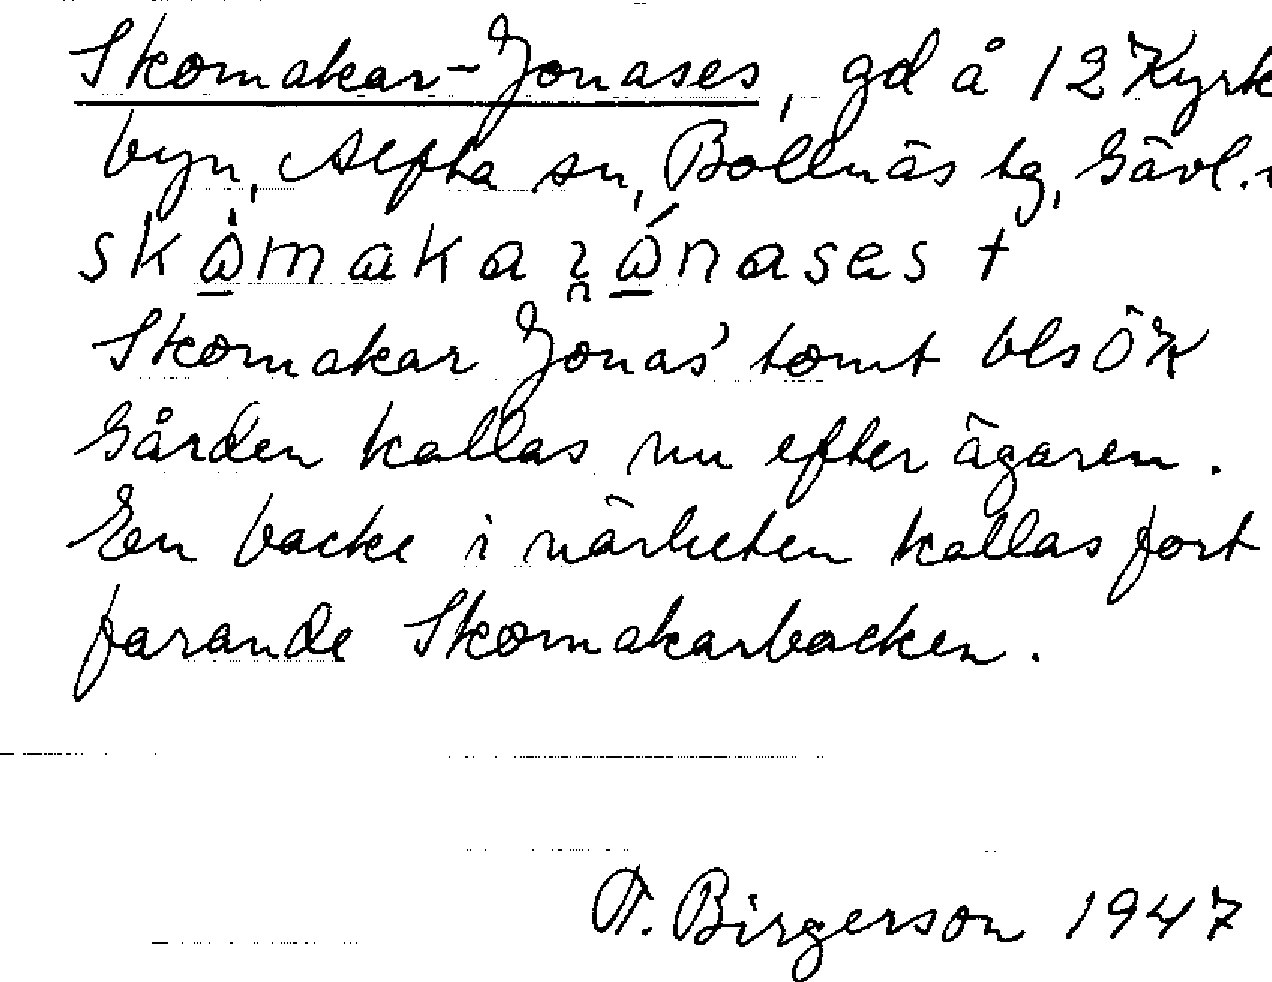 Skomakar-Jonases, gd å 12 Kyrk
byn, Alfta sn, Bollnäs tg, Gävl.
Skomakar Jonas' tomt bls ÖK
Gården kallas nu efter ägaren.
En backe i närheten kallas fort
farande Skomakarbacken.
F. Birgerson 1947